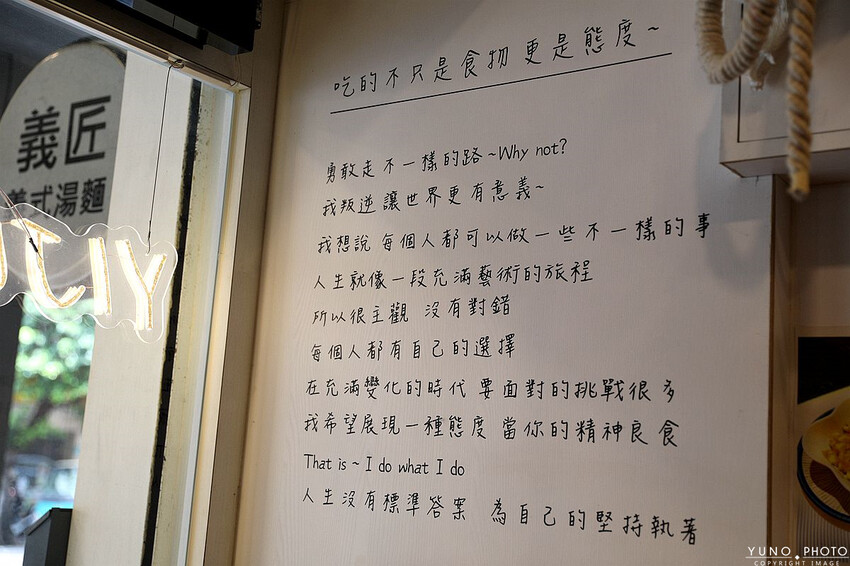 義匠
式湯麵
吃的不只是食物 更是態度~
勇敢走不一樣的路~Why not?
我叛逆讓世界更有意義~
我想說 每個人都可以做一些不一樣的事
人生就像一段充滿藝術的旅程
所以很主觀 沒有對錯
每個人都有自己的選擇
在充滿變化的時代 要面對的挑戰很多
我希望展現一種態度 當你的精神良食
That is ~ I do what I do
人生沒有標準答案 為自己的堅持執著
YUNO PHOTO
COPYRIGHT IMAGE